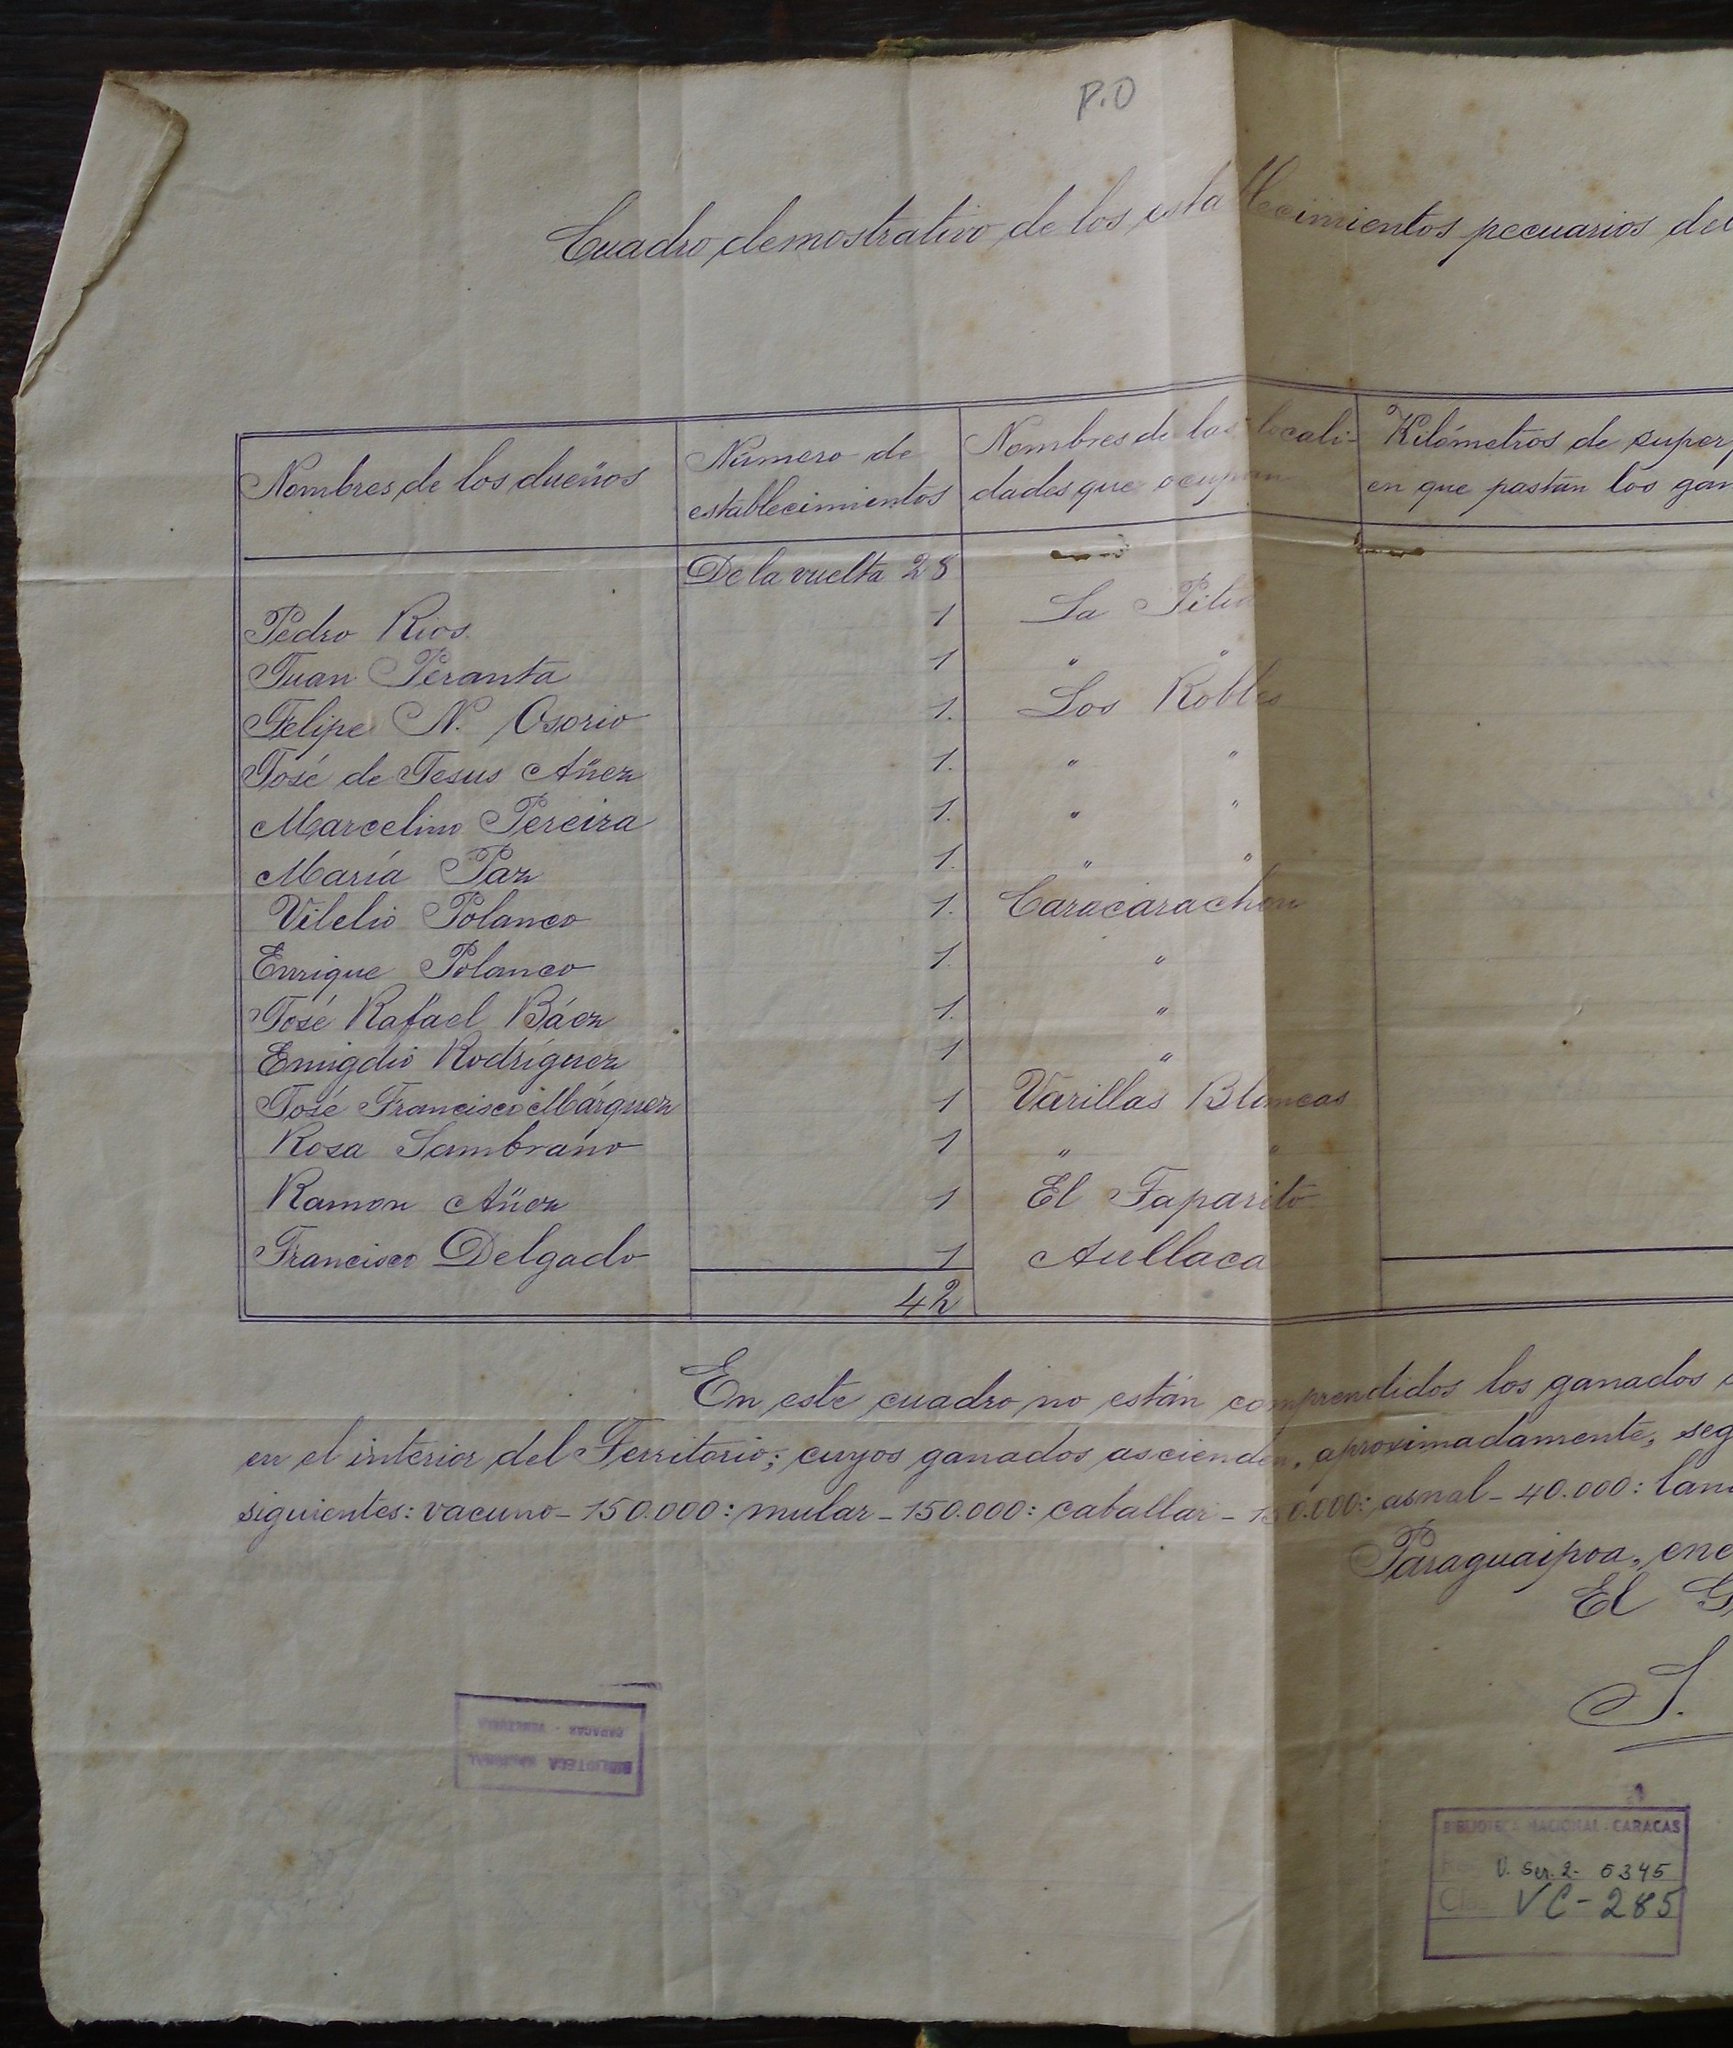 P.O
Cuadro demostrativo de los establecimientos pecuarios del
Nombres de los dueños | Número de establecimientos | Nombres de las locali-dades que ocupan | Kilómetros de super en que pastan los gan
De la vuelta 28
Pedro Rios. 1 La
Juan Peranta 1 " "
Felipe N. Osorio 1. Los Robles
José de Jesus Añez 1. " "
Marcelino Pereira 1. " "
María Paz 1. " "
Vilelio Polanco 1. Caracarachon
Enrique Polanco 1. "
José Rafael Báez 1. "
Emigdio Rodríguez 1 "
José Francisco Márquez 1 Varillas Blancas
Rosa Sambrano 1 " "
Ramon Añez 1 El Taparito
Francisco Delgado 1 Aullaca
42
En este cuadro no están comprendidos los ganados
en el interior del Territorio; cuyos ganados ascienden, aproximadamente, seg
siguientes: vacuno - 150.000: mular - 150.000: caballar - 150.000: asnal - 40.000: lan
Paraguaipoa, ene
El G
S.
BIBLIOTECA NACIONAL
CARACAS - VENEZUELA
BIBLIOTECA NACIONAL - CARACAS
V. Ser. 2- 5345
VC-285